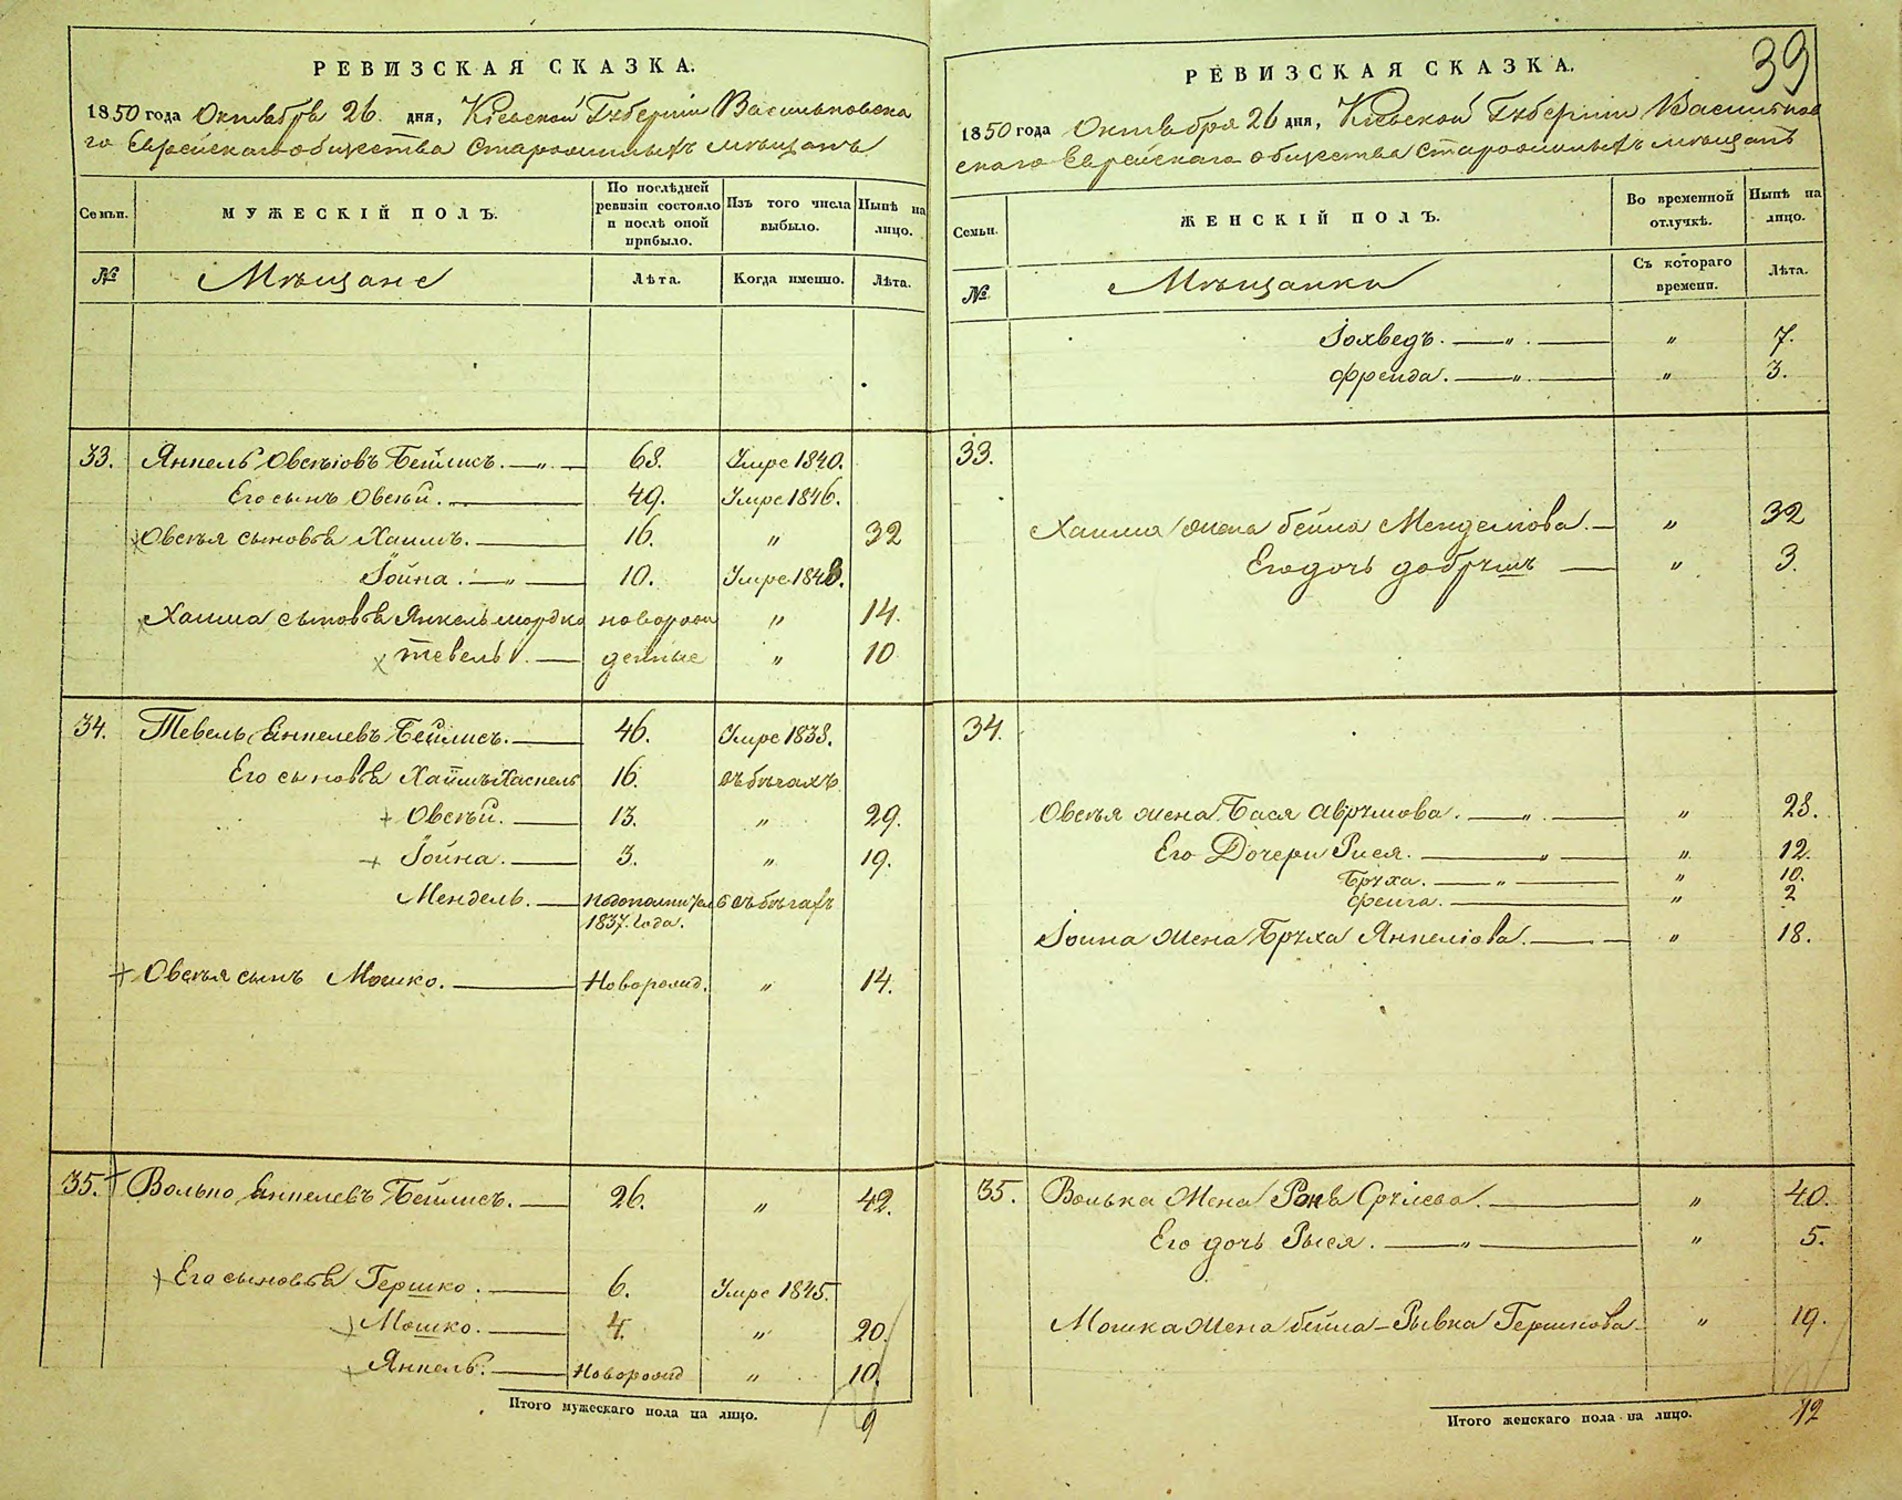 РЕВИЗСКАЯ СКАЗКА.
1850 года Октября 26. дня, Кіевской Губерніи Васильковска
го Еврейскаго общества Староошлыхъ мѣщанъ
Семьи.
МУЖЕСКІЙ ПОЛЪ.
По послѣдней ревизіи состояло и послѣ оной прибыло.
Изъ того числа выбыло.
Нынѣ на лицо.
№
Мѣщане
Лѣта.
Когда именно.
Лѣта.
33. Янкель Овсѣіовъ Бейлисъ. 68. Умре 1840.
Его сынъ Овсѣй. 49. Умре 1846.
Овсѣя сыновья Хаимъ. 16. " 32
Іойна. " 10. Умре 1848.
Хаима сыновья Янкель мордко новорож " 14.
Тевель. денные " 10
34. Тевель Янкелевъ Бейлисъ. 46. Умре 1838.
Его сыновья Хаимъ Хаскель 16. въ бѣгахъ
Овсѣй. 13. " 29.
Іойна. 3. " 19.
Мендель. въ бѣгахъ
1837. года.
Овсѣя сынъ Мошко. Новорожд. " 14.
35. Волько Янкелевъ Бейлисъ. 26. " 42.
Его сыновья Гершко. 6. Умре 1845.
Мошко. 4. " 20.
Янкель. Новорожд " 10.
Итого мужескаго пола на лицо. 9
39
РЕВИЗСКАЯ СКАЗКА.
1850 года Октября 26 дня, Кіевской Губерніи Васильков
скаго Еврейскаго общества Староошлыхъ мѣщанъ
Семьи.
ЖЕНСКІЙ ПОЛЪ.
Во временной отлучкѣ.
Нынѣ на лицо.
№
Мѣщанки
Съ котораго времени.
Лѣта.
Іохведъ. " " 7.
Фрейда. " " 3.
33.
Хаима жена бейла Менделіова. " 32
Его дочь добрушъ " 3.
34.
Овсѣя жена Бася Аврумова. " " 28.
Его Дочери Рися. " " 12.
Бруха. " " 10.
Фейга. " 2
Іойна жена Бруха Янкеліова. " 18.
35. Волька жена Роня Сруліова. " 40.
Его дочь Рыся. " " 5.
Мошка жена бейла-Рывка Гершкова " 19.
Итого женскаго пола на лицо. 12